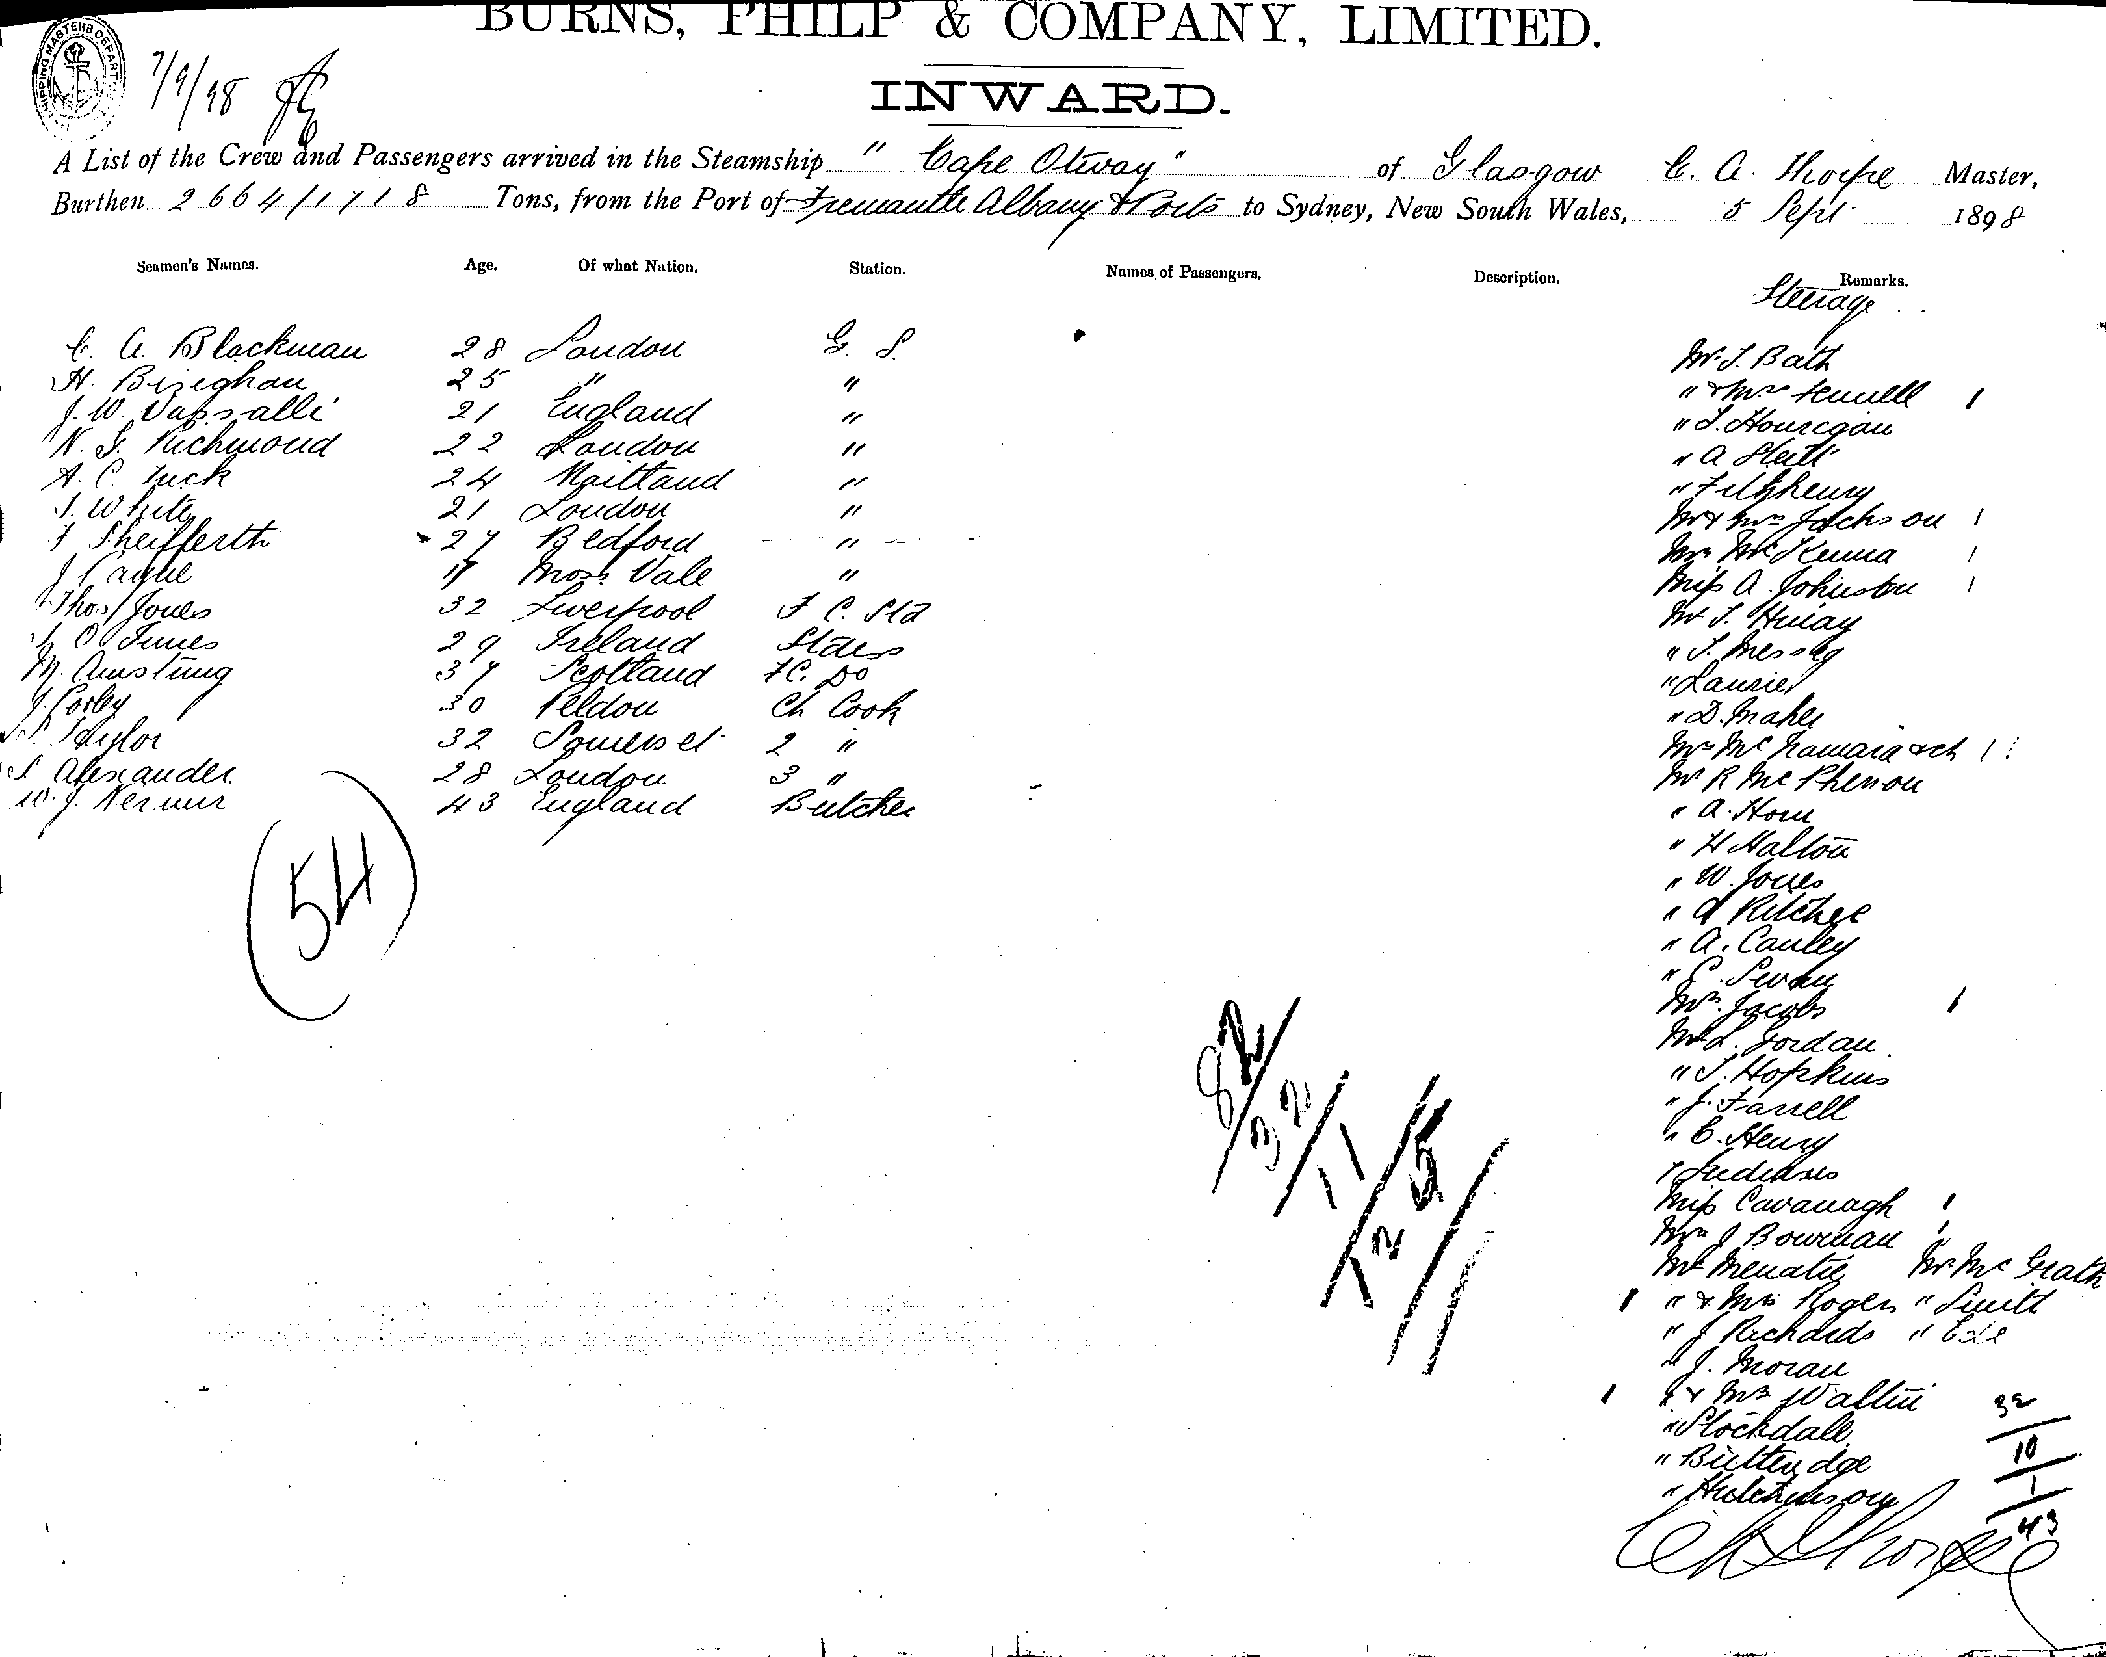 BURNS, PHILP & COMPANY, LIMITED.
7/9/98
INWARD.
A List of the Crew and Passengers arrived in the Steamship " Cape Otway " of Glasgow C. A. Thorpe Master,
Burthen 2664/1718 Tons, from the Port of Fremantle Albany & Ports to Sydney, New South Wales, 5 Sept 1898
Seamen's Names. Age. Of what Nation. Station. Names of Passengers. Description. Remarks.
Steerage
C. A. Blackman 28 London G. S.
H. 25 " "
J. W. Vassalli 21 England "
N. G. Richmond 22 London "
A. C. Tuck 24 Maitland "
White 21 London "
27 Bedford "
J 17 Moss Vale "
Thos Jones 32 Liverpool F C. Std
29 Ireland
M. 37 Scotland FC. Do
J. Corby 30 Peldon Ch Cook
Taylor 32 Somerset 2 "
S Alexander 28 London 3 "
W. J. 43 England Butcher
(54)
Mr. J. Bath
" & Mrs 1
" Hourigan
" A
" Fitzhenry
Mr & Mrs Jackson 1
Mrs McKenna 1
Miss A. Johnston 1
Mr
"
" Laurie
" D. Maher
Mrs McNamara & ch 1
Mr R McPherson
" A. Horn
" H Halton
" W. Jones
" Ritchie
" A. Cauley
" Swan
Mrs. Jacobs 1
Mr L. Jordan
" Hopkins
" J. Farrell
" C. Henry
7
Miss Cavanagh 1
Mrs J Bowman 1
Mr Menatie Mr McGrath
1 " & Mrs Rogers " Smith
" J Richards "
" J. Moran
1 " & Mrs
" Stockdale
" Butteridge
" Hutchinson
82
32
11
125
32
10
1
43
C A Thorpe